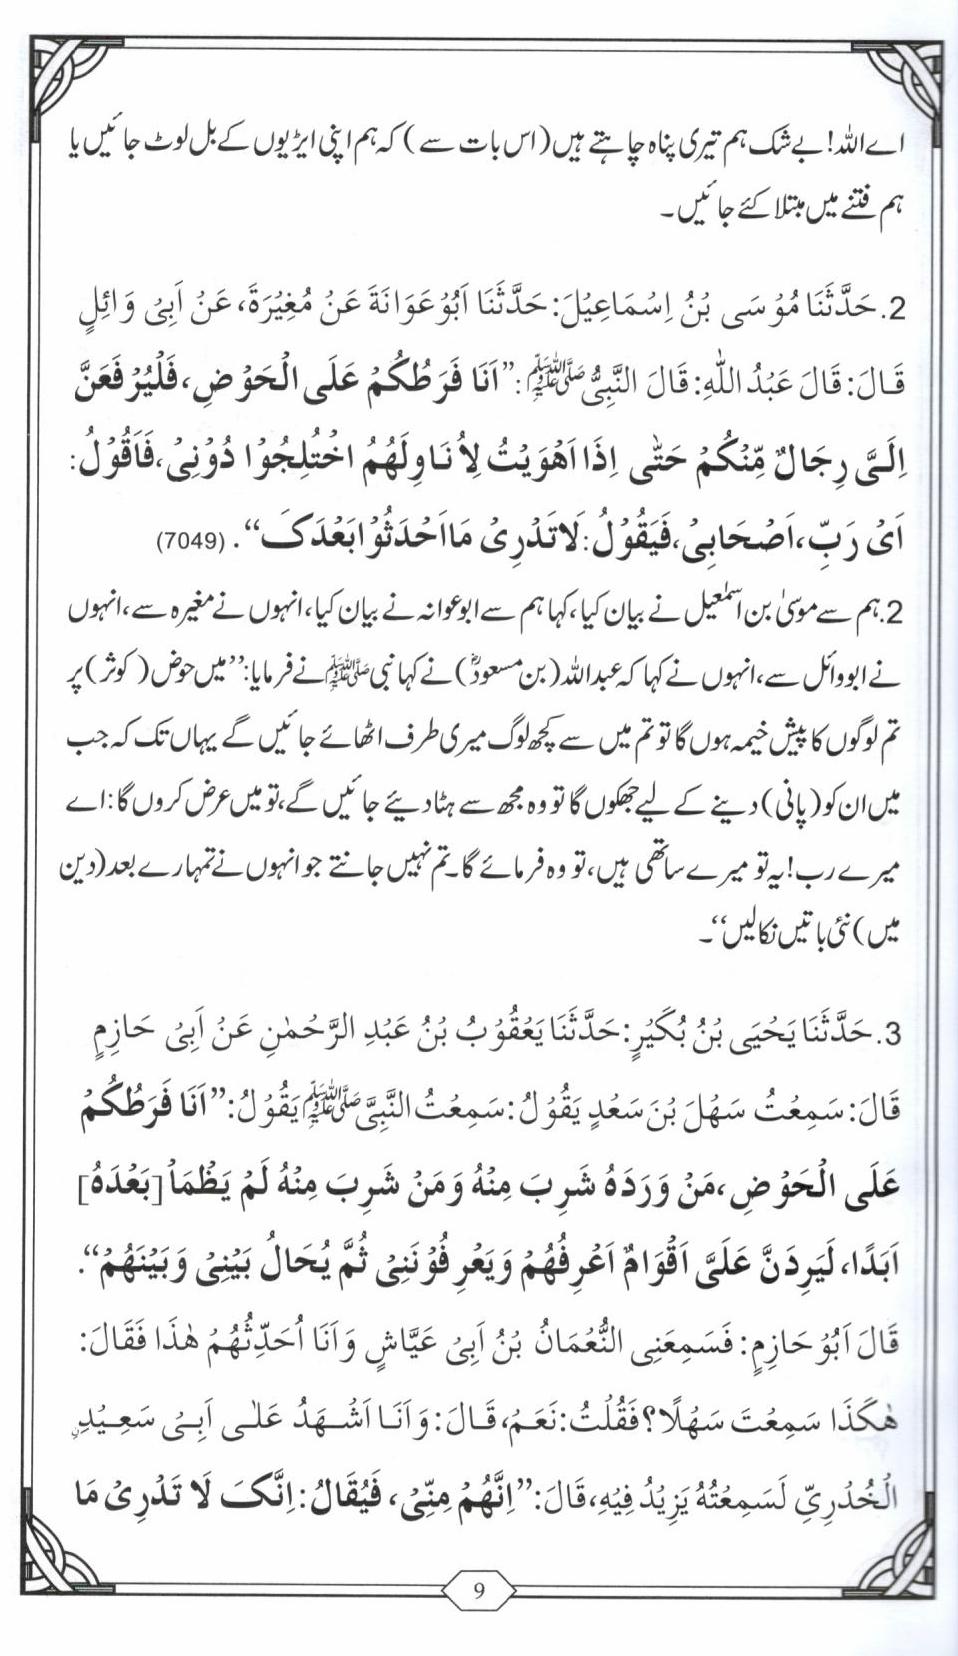 اے اللہ! بے شک ہم تیری پناہ چاہتے ہیں (اس بات سے) کہ ہم اپنی ایڑیوں کے بل لوٹ جائیں یا
ہم فتنے میں مبتلا کئے جائیں۔
2. حَدَّثَنَا مُوْسَى بْنُ اِسْمَاعِيْلَ: حَدَّثَنَا اَبُوْ عَوَانَةَ عَنْ مُغِيْرَةَ، عَنْ اَبِیْ وَائِلٍ
قَالَ: قَالَ عَبْدُ اللهِ: قَالَ النَّبِیُّ ﷺ: ”اَنَا فَرَطُكُمْ عَلَى الْحَوْضِ، فَلْيُرْفَعَنَّ
اِلَیَّ رِجَالٌ مِّنْكُمْ حَتّٰى اِذَا اَهْوَيْتُ لِاُنَاوِلَهُمُ اخْتُلِجُوْا دُوْنِیْ، فَاَقُوْلُ:
اَیْ رَبِّ، اَصْحَابِیْ، فَيَقُوْلُ: لَا تَدْرِیْ مَا اَحْدَثُوْا بَعْدَکَ“. (7049)
2. ہم سے موسیٰ بن اسمٰعیل نے بیان کیا، کہا ہم سے ابوعوانہ نے بیان کیا، انہوں نے مغیرہ سے، انہوں
نے ابو وائل سے، انہوں نے کہا کہ عبداللہ (بن مسعودؓ) نے کہا نبی ﷺ نے فرمایا: ”میں حوض (کوثر) پر
تم لوگوں کا پیش خیمہ ہوں گا تو تم میں سے کچھ لوگ میری طرف اٹھائے جائیں گے یہاں تک کہ جب
میں ان کو (پانی) دینے کے لیے جھکوں گا تو وہ مجھ سے ہٹا دیئے جائیں گے، تو میں عرض کروں گا: اے
میرے رب! یہ تو میرے ساتھی ہیں، تو وہ فرمائے گا۔ تم نہیں جانتے جو انہوں نے تمہارے بعد (دین
میں) نئی باتیں نکالیں“۔
3. حَدَّثَنَا يَحْيَى بْنُ بُكَيْرٍ: حَدَّثَنَا يَعْقُوْبُ بْنُ عَبْدِ الرَّحْمٰنِ عَنْ اَبِیْ حَازِمٍ
قَالَ: سَمِعْتُ سَهْلَ بْنَ سَعْدٍ يَقُوْلُ: سَمِعْتُ النَّبِیَّ ﷺ يَقُوْلُ: ”اَنَا فَرَطُكُمْ
عَلَى الْحَوْضِ، مَنْ وَرَدَهُ شَرِبَ مِنْهُ وَمَنْ شَرِبَ مِنْهُ لَمْ يَظْمَاْ [بَعْدَهُ]
اَبَدًا، لَيَرِدَنَّ عَلَیَّ اَقْوَامٌ اَعْرِفُهُمْ وَيَعْرِفُوْنَنِیْ ثُمَّ يُحَالُ بَيْنِیْ وَبَيْنَهُمْ“.
قَالَ اَبُوْ حَازِمٍ: فَسَمِعَنِی النُّعْمَانُ بْنُ اَبِیْ عَيَّاشٍ وَاَنَا اُحَدِّثُهُمْ هٰذَا فَقَالَ:
هٰكَذَا سَمِعْتَ سَهْلًا؟ فَقُلْتُ: نَعَمْ، قَالَ: وَاَنَا اَشْهَدُ عَلٰى اَبِیْ سَعِيْدِنِ
الْخُدْرِیِّ لَسَمِعْتُهُ يَزِيْدُ فِيْهِ، قَالَ: ”اِنَّهُمْ مِنِّیْ، فَيُقَالُ: اِنَّکَ لَا تَدْرِیْ مَا
9